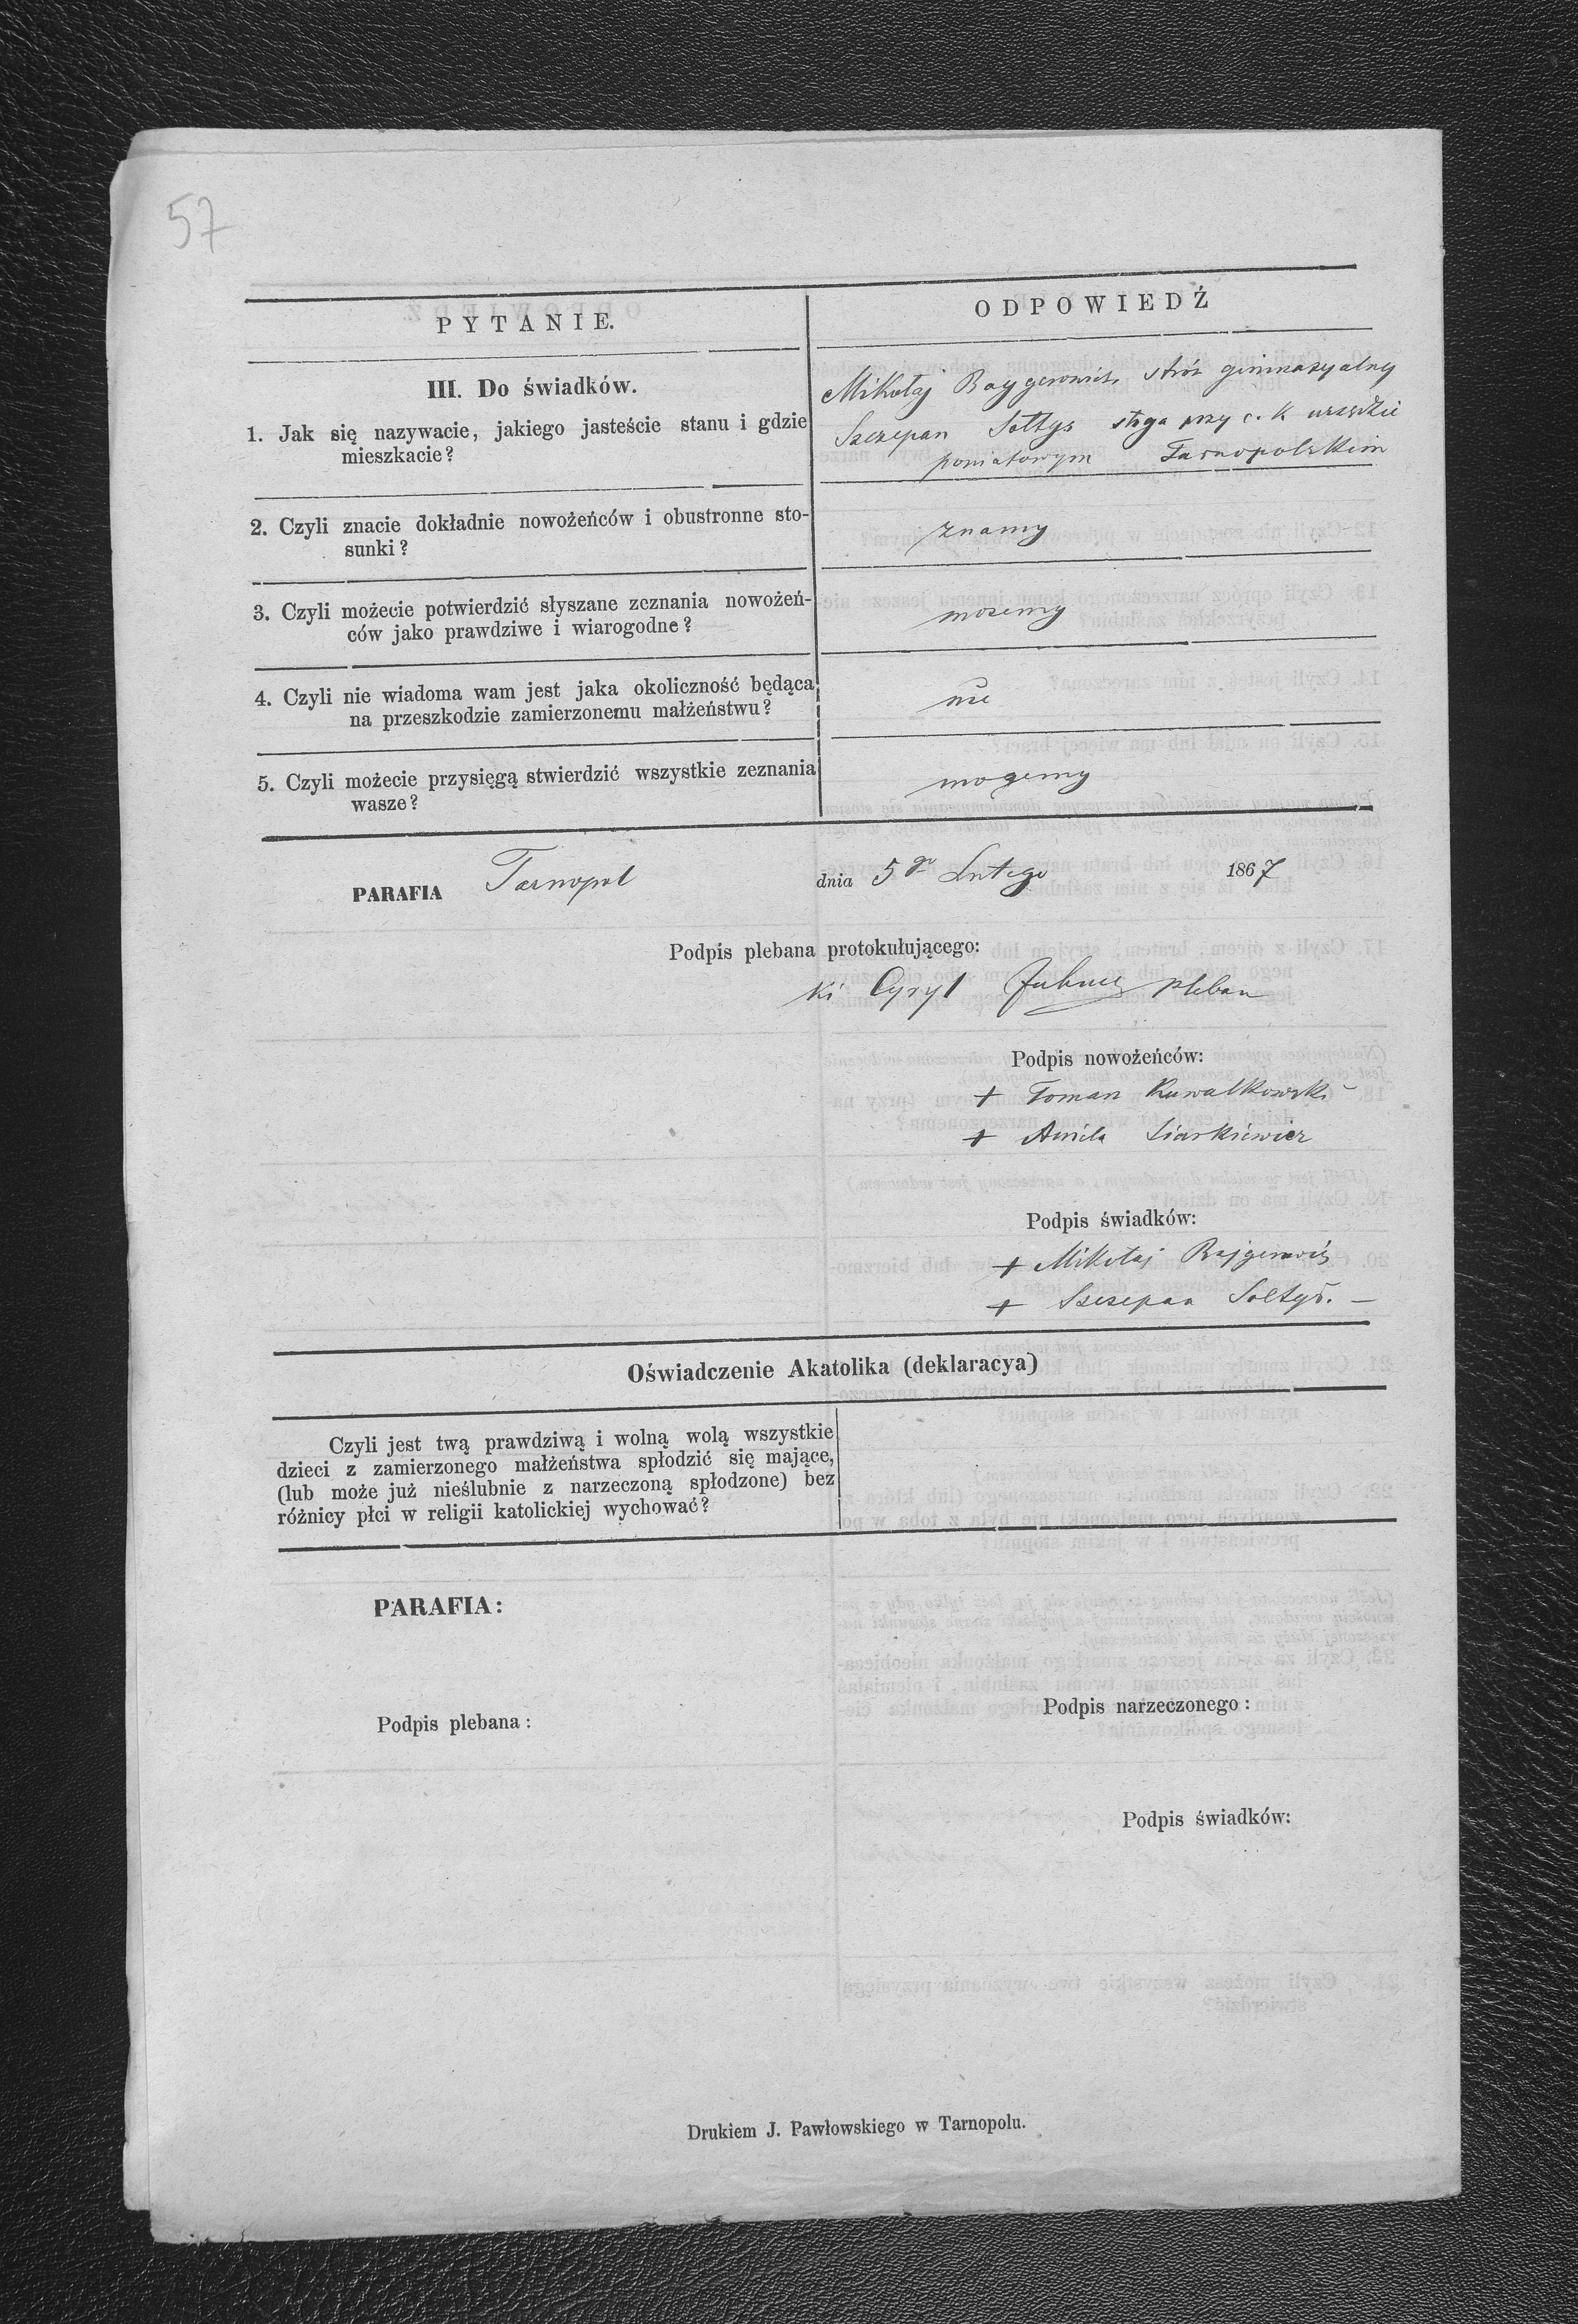 57
PYTANIE.
ODPOWIEDŹ
III. Do świadków.
1. Jak się nazywacie, jakiego jasteście stanu i gdzie
mieszkacie?
Mikołaj stróż gimnazyalny
Szczepan Sołtys sługa przy c. k urzędzie
powiatowym Tarnopolskim
2. Czyli znacie dokładnie nowożeńców i obustronne sto-
sunki?
znamy
3. Czyli możecie potwierdzić słyszane zeznania nowożeń-
ców jako prawdziwe i wiarogodne?
możemy
4. Czyli nie wiadoma wam jest jaka okoliczność będąca
na przeszkodzie zamierzonemu małżeństwu?
nie
5. Czyli możecie przysięgą stwierdzić wszystkie zeznania
wasze?
mogemy
PARAFIA Tarnopol dnia 5go Lutego 1867
Podpis plebana protokułującego:
Cyryl pleban
Podpis nowożeńców:
+ Toman Kuwalkowski
+ Aniela
Podpis świadków:
+ Mikołaj
+ Szczepan Sołtys. —
Oświadczenie Akatolika (deklaracya)
Czyli jest twą prawdziwą i wolną wolą wszystkie
dzieci z zamierzonego małżeństwa spłodzić się mające,
(lub może już nieślubnie z narzeczoną spłodzone) bez
różnicy płci w religii katolickiej wychować?
PARAFIA:
Podpis plebana:
Podpis narzeczonego:
Podpis świadków:
Drukiem J. Pawłowskiego w Tarnopolu.